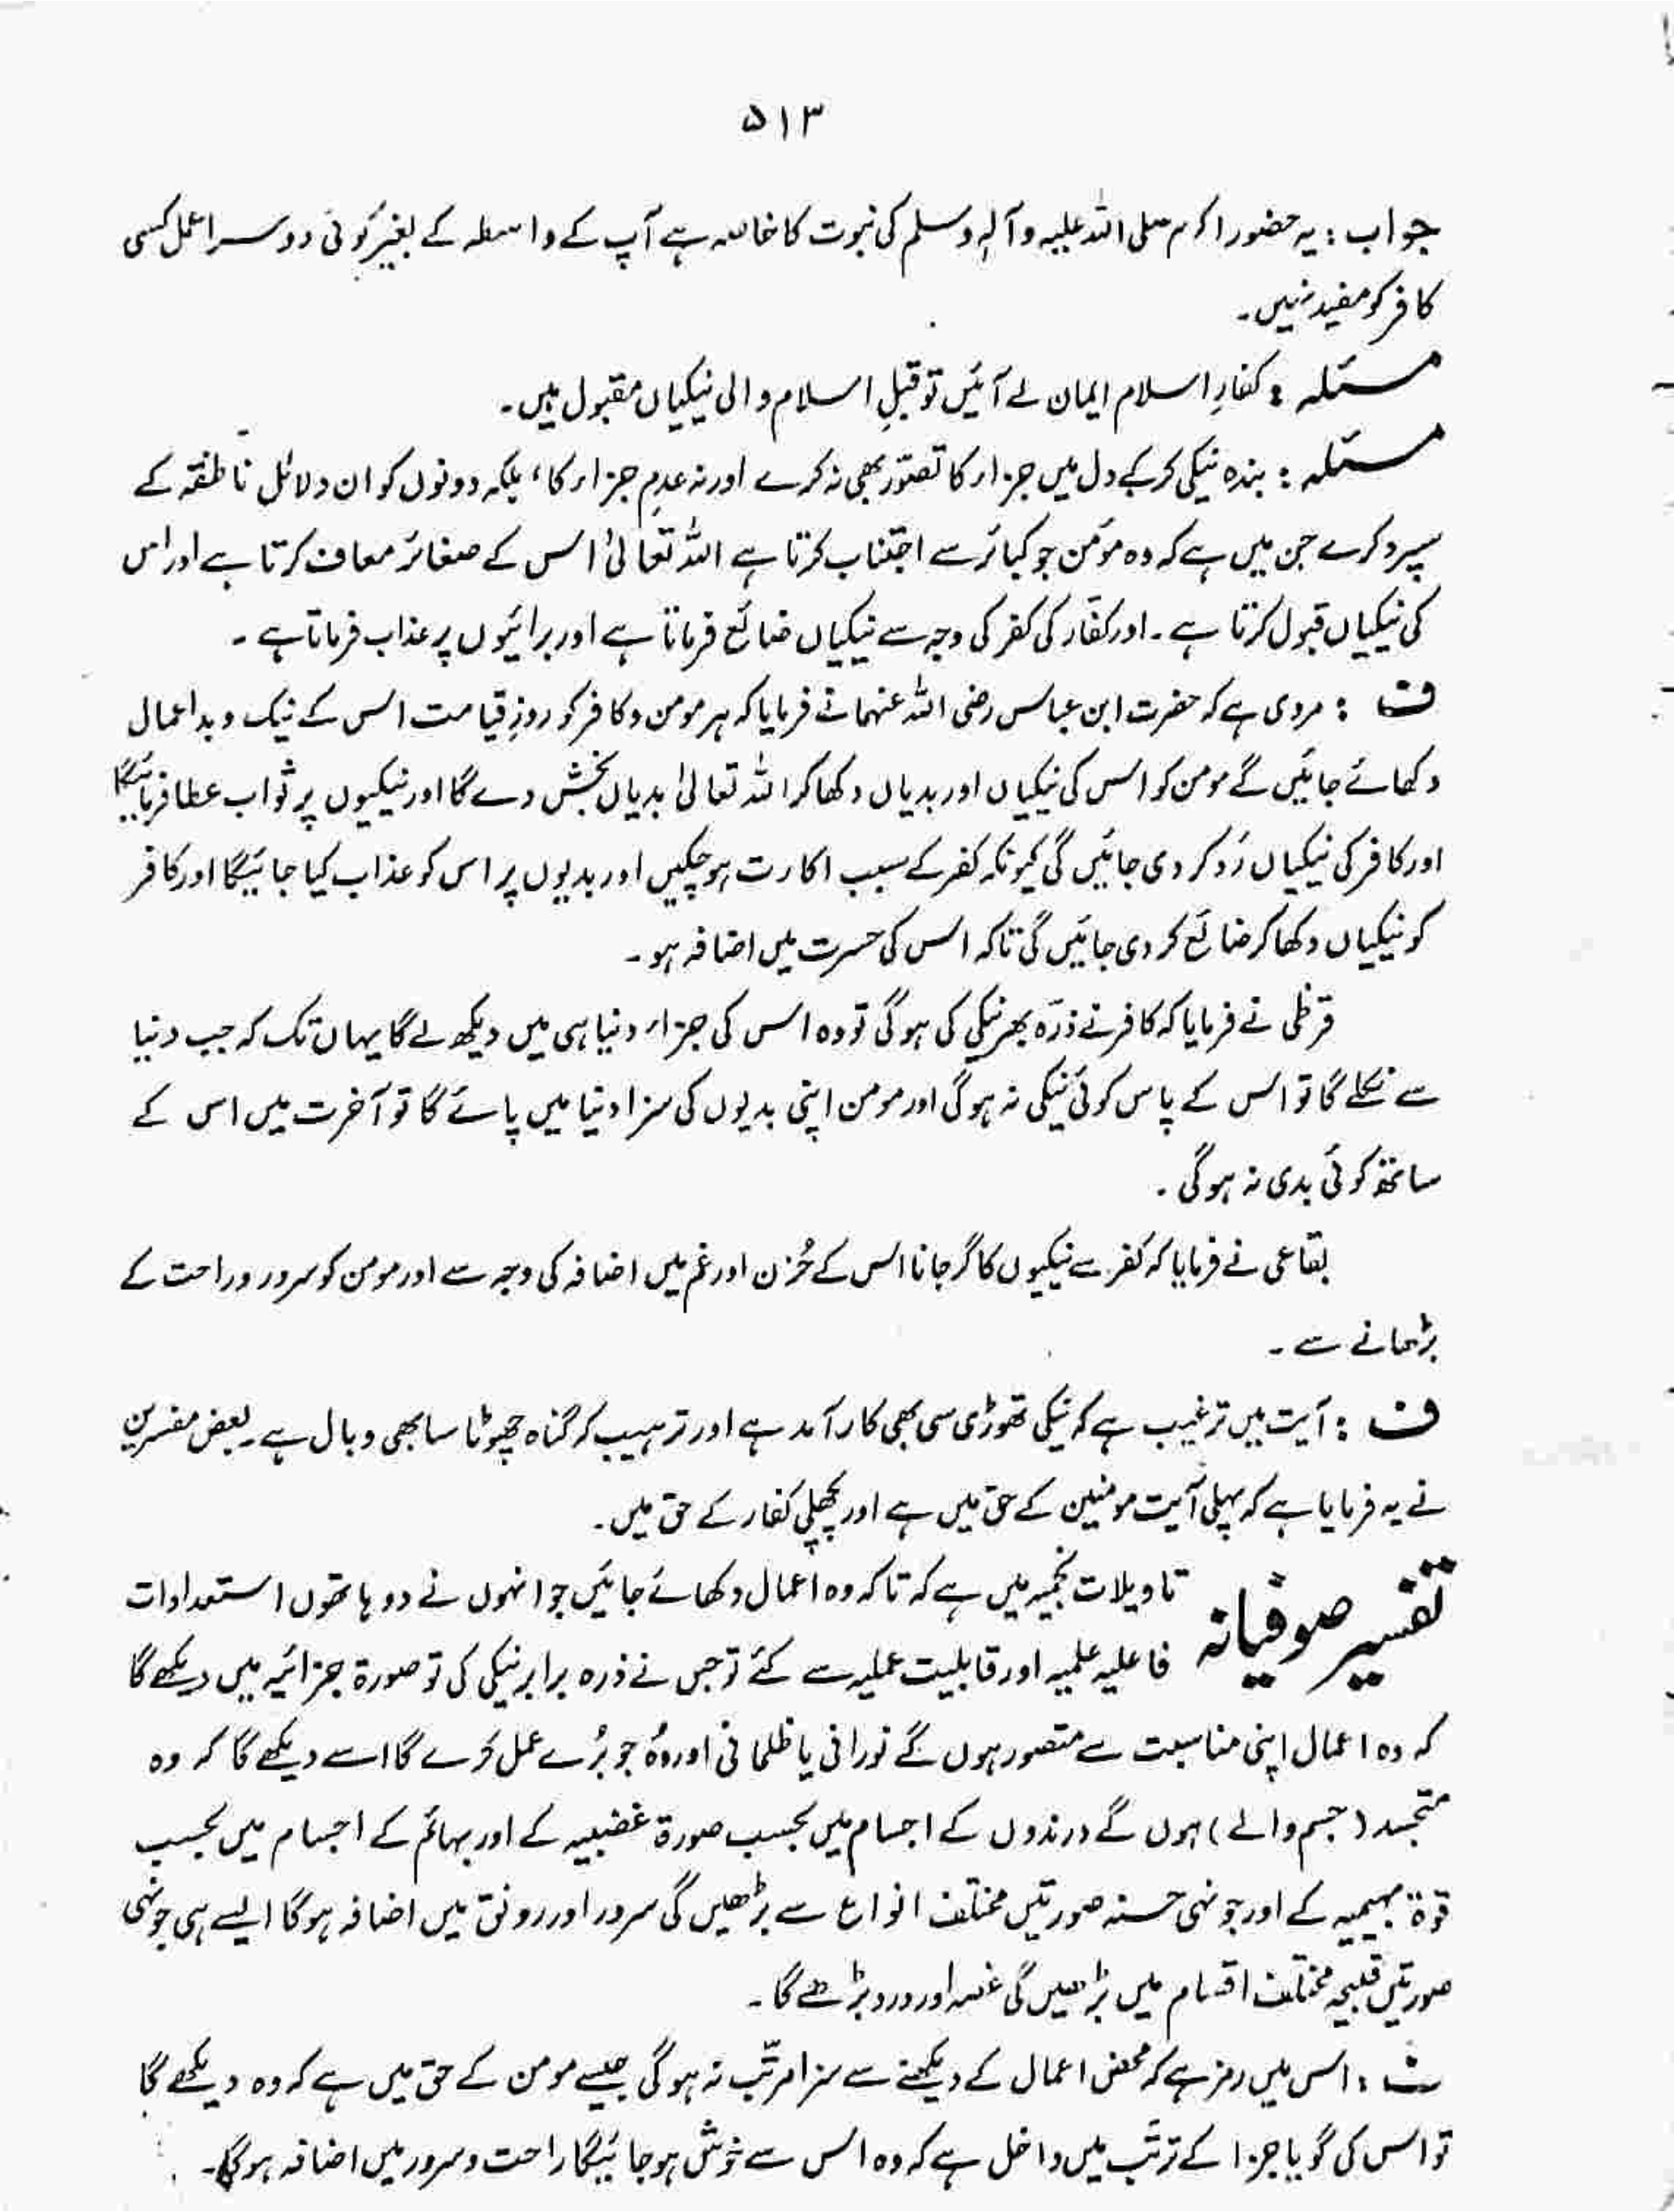 ۵۱۳
جواب : یہ حضور اکرم صلی اللہ علیہ وآلہٖ وسلم کی نبوت کا خاصہ ہے آپ کے واسطہ کے بغیر کوئی دوسرا عمل کسی
کافر کو مفید نہیں۔
مسئلہ : کفارِ اسلام ایمان لے آئیں تو قبلِ اسلام والی نیکیاں مقبول ہیں۔
مسئلہ : بندہ نیکی کر کے دل میں جزاء کا تصوّر بھی نہ کرے اور نہ عدمِ جزاء کا، بلکہ دونوں کو ان دلائل ناطقہ کے
سپرد کرے جن میں ہے کہ وہ مؤمن جو کبائر سے اجتناب کرتا ہے اللہ تعالیٰ اس کے صغائر معاف کرتا ہے اور اس
کی نیکیاں قبول کرتا ہے۔ اور کفّار کی کفر کی وجہ سے نیکیاں ضائع فرماتا ہے اور برائیوں پر عذاب فرماتا ہے۔
ف : مروی ہے کہ حضرت ابن عباس رضی اللہ عنہما نے فرمایا کہ ہر مومن و کافر کو روزِ قیامت اس کے نیک و بد اعمال
دکھائے جائیں گے مومن کو اس کی نیکیاں اور بدیاں دکھا کر اللہ تعالیٰ بدیاں بخش دے گا اور نیکیوں پر ثواب عطا فرمائیگا
اور کافر کی نیکیاں رَد کر دی جائیں گی کیونکہ کفر کے سبب اکارت ہو چکیں اور بدیوں پر اس کو عذاب کیا جائیگا اور کافر
کو نیکیاں دکھا کر ضائع کر دی جائیں گی تاکہ اس کی حسرت میں اضافہ ہو۔
قرظی نے فرمایا کہ کافر نے ذرّہ بھر نیکی کی ہوگی تو وہ اس کی جزاء دنیا ہی میں دیکھ لے گا یہاں تک کہ جب دنیا
سے نکلے گا تو اس کے پاس کوئی نیکی نہ ہوگی اور مومن اپنی بدیوں کی سزا دنیا میں پائے گا تو آخرت میں اس کے
ساتھ کوئی بدی نہ ہوگی۔
بقاعی نے فرمایا کہ کفر سے نیکیوں کا گر جانا اس کے حُزن اور غم میں اضافہ کی وجہ سے اور مومن کو سرور و راحت کے
بڑھانے سے۔
ف : آیت میں ترغیب ہے کہ نیکی تھوڑی سی بھی کار آمد ہے اور ترہیب کہ گناہ چھوٹا سا بھی وبال ہے۔ بعض مفسرین
نے یہ فرمایا ہے کہ پہلی آیت مومنین کے حق میں ہے اور پچھلی کفار کے حق میں۔
تفسیر صوفیانہ تاویلات نجمیہ میں ہے کہ تاکہ وہ اعمال دکھائے جائیں جو انہوں نے دو ہاتھوں استعدادات
فاعلیہ علمیہ اور قابلیت عملیہ سے کئے تو جس نے ذرہ برابر نیکی کی تو صورۃ جزائیہ میں دیکھے گا
کہ وہ اعمال اپنی مناسبت سے متصور ہوں گے نورانی یا ظلمانی اور وُہ جو بُرے عمل کرے گا اسے دیکھے گا کہ وہ
متجسد (جسم والے) ہوں گے درندوں کے اجسام میں بحسب صورۃ غضبیہ کے اور بہائم کے اجسام میں بحسب
قوۃ بہیمیہ کے اور جونہی حسنہ صورتیں مختلف انواع سے بڑھیں گی سرور اور رونق میں اضافہ ہوگا ایسے ہی جونہی
صورتیں قبیحہ مختلف اقسام میں بڑھیں گی غصہ اور درد بڑھے گا۔
ف : اس میں رمز ہے کہ محض اعمال کے دیکھنے سے سزا مرتّب نہ ہوگی جیسے مومن کے حق میں ہے کہ وہ دیکھے گا
تو اس کی گویا جزا کے ترتّب میں داخل ہے کہ وہ اس سے خوش ہو جائیگا راحت و سرور میں اضافہ ہوگا۔